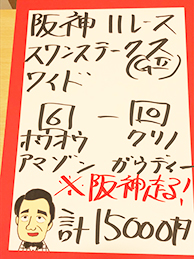 阪神11レース
スワンステークス(GⅡ)
ワイド
6 ー 10
ホウオウ クリノ
アマゾン ガウディー
※阪神走る!
計15000円